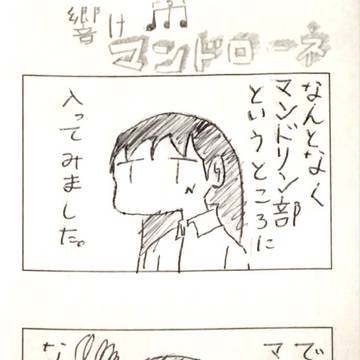 響け
マンドローネ
なんとなく
マンドリン部
というところに
入ってみました。
で
マ
な